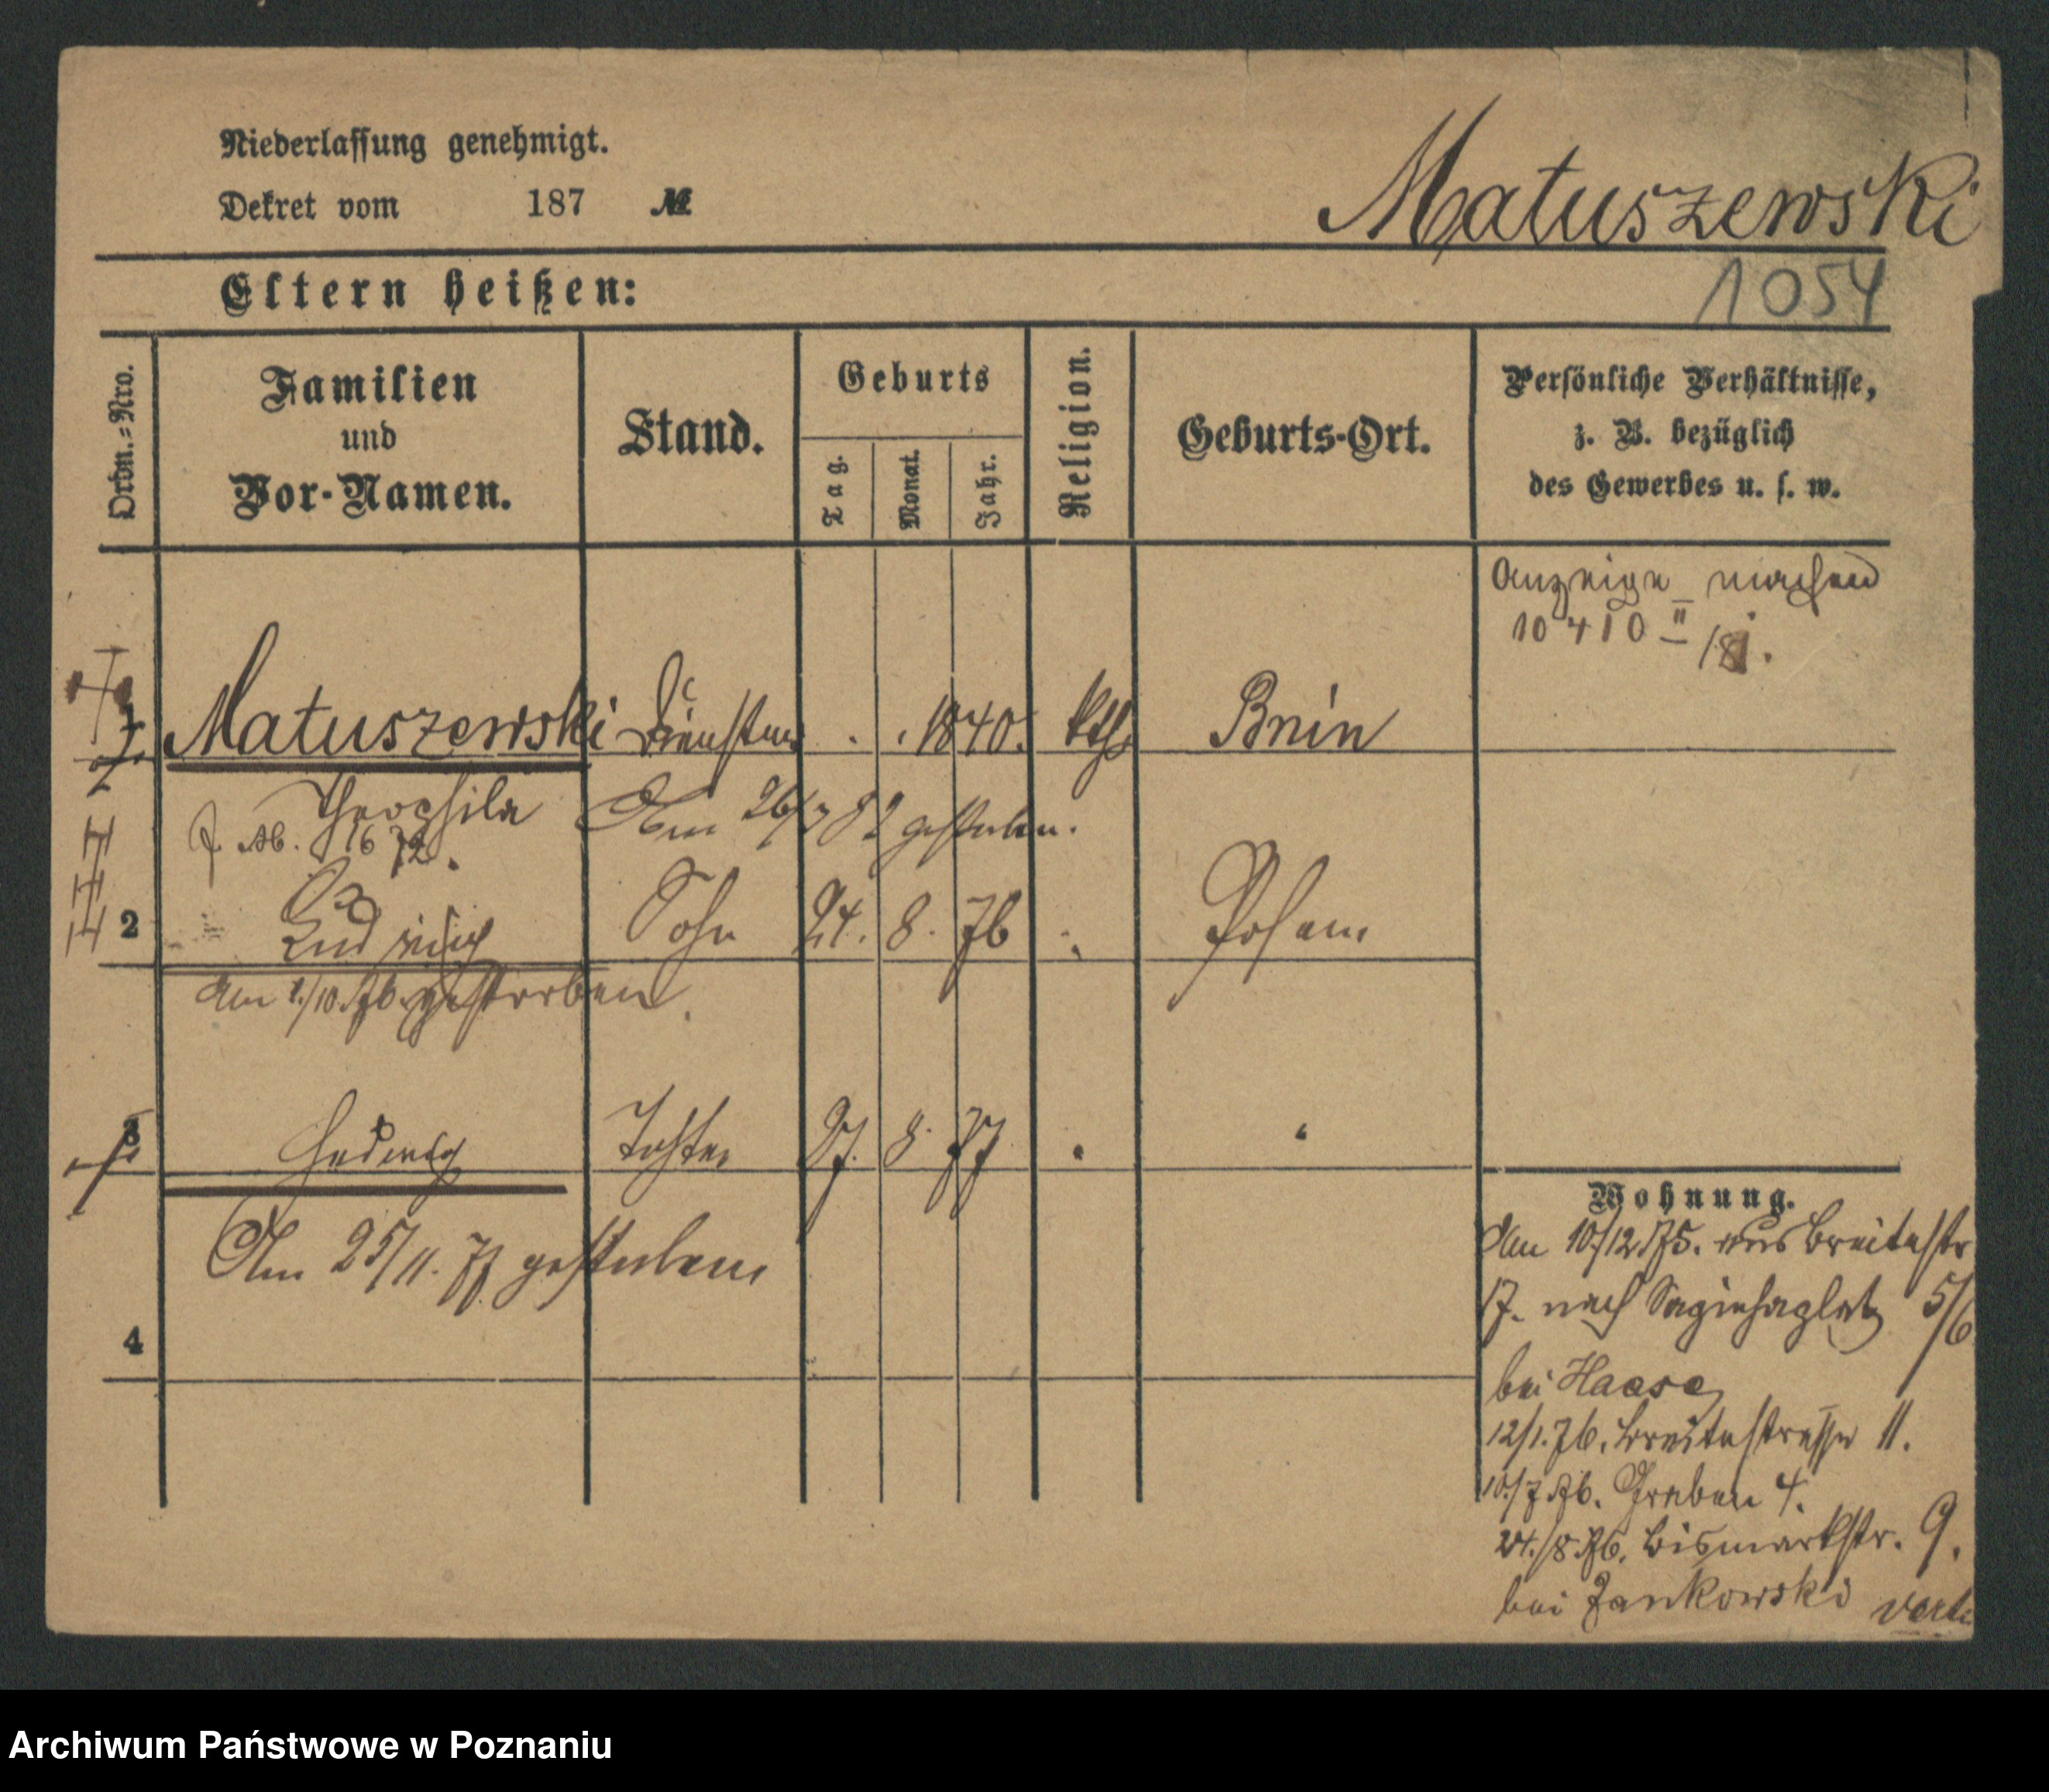 Niederlassung genehmigt.
Dekret vom 187 №
Matuszewski
1054
Eltern heißen:
Ordn.-Nro.
Familien
und
Vor-Namen.
Stand.
Geburts
Tag.
Monat.
Jahr.
Religion.
Geburts-Ort.
Persönliche Verhältnisse,
z. B. bezüglich
des Gewerbes u. s. w.
Anzeige machen
10410 II
Matuszewski . . 1840. kth. Bnin
Theophila Am 26/7 82 gestorben.
16 72.
2 Ludwig Sohn 24. 8. 76 " Posen
Am 1./10. 76. gestorben.
3 Hedwig Tochter 27. 8. 77 " "
Am 25/11. 77 gestorben
4
Wohnung.
Am 10/12 75. aus Breitestr
17. nach Sapiehaplatz 5/6
bei Haase
12/1. 76. Breitestrasse 11.
10/7 76. Graben 4.
24./8 76. Bismarkstr. 9.
bei Jankowski
Archiwum Państwowe w Poznaniu